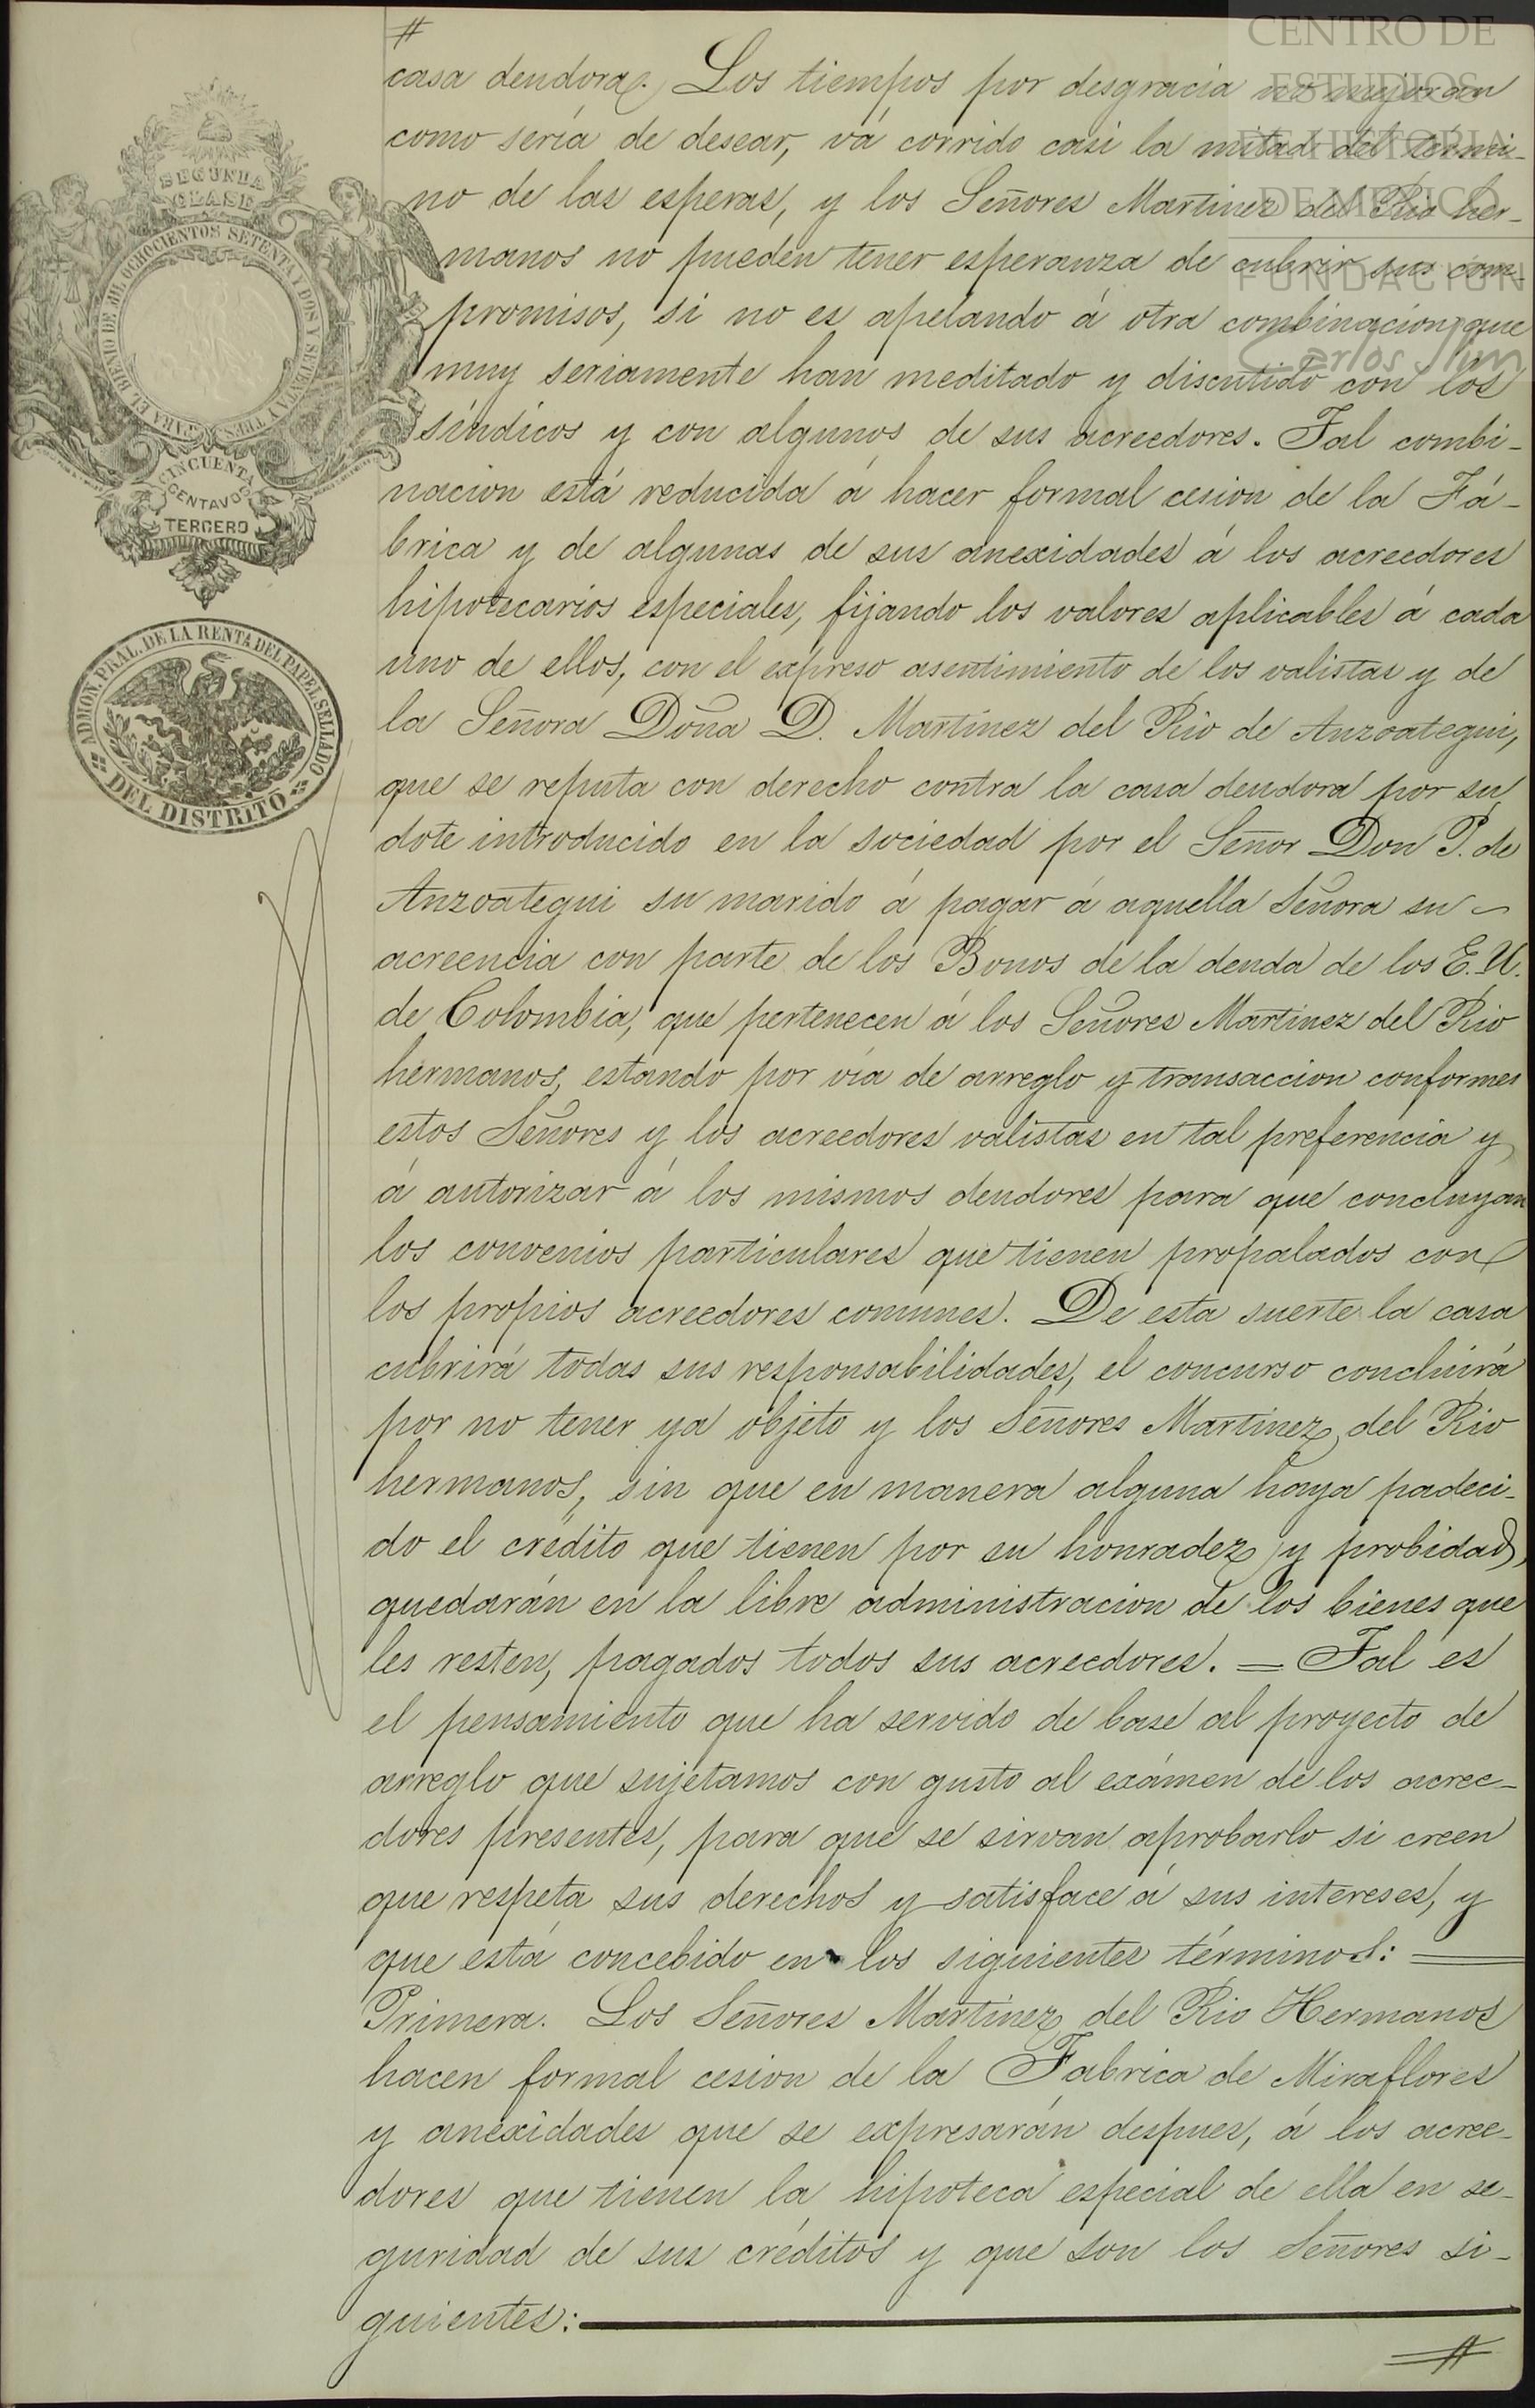 CENTRO DE
ESTUDIOS
DE HISTORIA
DE MEXICO
FUNDACION
Carlos Slim
SEGUNDA
CLASE
PARA EL BIENIO DE MIL OCHOCIENTOS SETENTA Y DOS Y SETENTA Y TRES
CINCUENTA
CENTAVOS
TERCERO
ADMON. PRAL. DE LA RENTA DEL PAPEL SELLADO
DEL DISTRITO
#
casa deudora. Los tiempos por desgracia no mejoran
como sería de desear, vá corrido casi la mitad del térmi-
no de las esperas, y los Señores Martinez del Rio her-
manos no pueden tener esperanza de cubrir sus com-
promisos, si no es apelando á otra combinacion que
muy seriamente han meditado y discutido con los
síndicos y con algunos de sus acreedores. Tal combi-
nacion está reducida á hacer formal cesion de la Fá-
brica y de algunas de sus anexidades á los acreedores
hipotecarios especiales, fijando los valores aplicables á cada
uno de ellos, con el expreso asentimiento de los valistas y de
la Señora Doña D. Martinez del Rio de Anzoategui,
que se reputa con derecho contra la casa deudora por su
dote introducido en la sociedad por el Señor Don P. de
Anzoategui su marido á pagar á aquella Señora su
acreencia con parte de los Bonos de la deuda de los E. U.
de Colombia, que pertenecen á los Señores Martinez del Rio
hermanos, estando por vía de arreglo y transaccion conformes
estos Señores y los acreedores valistas en tal preferencia y
á autorizar á los mismos deudores para que concluyan
los convenios particulares que tienen propalados con
los propios acreedores comunes. De esta suerte la casa
cubrirá todas sus responsabilidades, el concurso concluirá
por no tener ya objeto y los Señores Martinez del Rio
hermanos, sin que en manera alguna haya padeci-
do el crédito que tienen por su honradez y probidad,
quedarán en la libre administracion de los bienes que
les resten, pagados todos sus acreedores. = Tal es
el pensamiento que ha servido de base al proyecto de
arreglo que sujetamos con gusto al exámen de los acree-
dores presentes, para que se sirvan aprobarlo si creen
que respeta sus derechos y satisface á sus intereses, y
que está concebido en los siguientes términos:
Primera. Los Señores Martinez del Rio Hermanos
hacen formal cesion de la Fabrica de Miraflores
y anexidades que se expresarán despues, á los acree-
dores que tienen la hipoteca especial de ella en se-
guridad de sus créditos y que son los Señores si-
guientes:
#